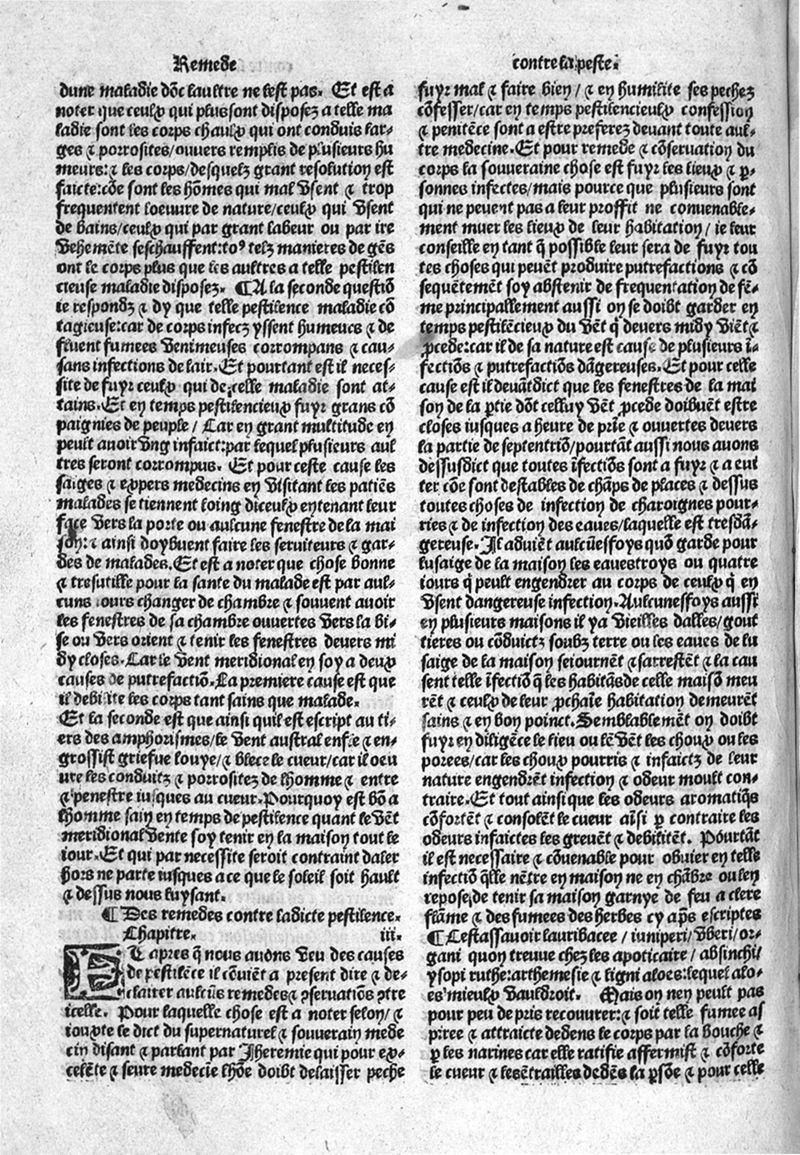 Remede
contre la peste.
dune maladie dõc laultre ne lest pas. Et est a
noter que ceulx qui plus sont disposez a telle ma
ladie sont les corps chaulx qui ont conduis lar-
ges ⁊ porrosites/ouvers remplis de plusieurs hu
meurs:⁊ les corps/desquelz grant resolution est
faicte:cõe sont les hõmes qui mal vsent ⁊ trop
frequentent loeuvre de nature/ceulx qui vsent
de bains/ceulx qui par grant labeur ou par ire
vehemẽte seschauffent:toꝰ telz manieres de gẽs
ont le corps plus que les aultres a telle pestilen
cieuse maladie disposez. ¶A la seconde questiõ
ie respondz ⁊ dy que telle pestilence maladie cõ
tagieuse:car de corps infecz yssent humeurs ⁊ de
fluent fumees venimeuses corrompans ⁊ cau-
sans infections de lair. Et pourtant est il neces-
site de fuyr ceulx qui de celle maladie sont at-
tains. Et en temps pestilencieux fuyr grans cõ
paignies de peuple/ Car en grant multitude en
peult avoir vng infaict:par lequel plusieurs aul
tres seront corrompus. Et pour ceste cause les
saiges ⁊ expers medecins en visitant les patiẽs
malades se tiennent loing diceulx en tenant leur
face vers la porte ou aulcune fenestre de la mai
son:⁊ ainsi doybuent faire les serviteurs ⁊ gar-
des de malades. Et est a noter que chose bonne
⁊ tresutille pour la sante du malade est par aul-
cuns iours changer de chambre ⁊ souvent avoir
les fenestres de sa chambre ouvertes vers la bi-
se ou vers orient ⁊ tenir les fenestres devers mi
dy closes. Car le vent meridional en soy a deux
causes de putrefactiõ. La premiere cause est que
il debilite les corps tant sains que malade.
Et la seconde est que ainsi quil est escript au ti-
ers des amphorismes/le vent austral enfle ⁊ en-
grossist griefue louye/⁊ blece le cueur/car il oeu
vre les conduitz ⁊ porrositez de lhomme ⁊ entre
⁊ penestre iusques au cueur. Pourquoy est bõ a
lhomme sain en temps de pestilence quant le vẽt
meridional vente soy tenir en la maison tout le
iour. Et qui par necessite seroit contraint daler
hors ne parte iusques a ce que le soleil soit hault
⁊ dessus nous luysant.
¶Des remedes contre ladicte pestilence.
Chapitre. iii.
ET apres q̃ nous avons veu des causes
de pestilẽce il cõuiẽt a present dire ⁊ de-
clairer aulcũs remedes ⁊ ꝯservatiõs ꝯtre
icelle. Pour laquelle chose est a noter selon/⁊
iouxte le dict du supernaturel ⁊ souverain mede
cin disant ⁊ parlant par Jheremie qui pour ex-
celẽte ⁊ seure medecie lhõe doibt delaisser peche
fuyr mal ⁊ faire bien/⁊ en humilite ses pechez
cõfesser/car en temps pestilencieulx confession
⁊ penitẽce sont a estre preferez devant toute aul-
tre medecine. Et pour remede ⁊ cõservation du
corps la souveraine chose est fuyr les lieux ⁊ ꝑ-
sonnes infectes/mais pource que plusieurs sont
qui ne peuent pas a leur proffit ne convenable-
ment muer les lieux de leur habitation/ie leur
conseille en tant q̃ possible leur sera de fuyr tou
tes choses qui peuẽt produire putrefactions ⁊ cõ
sequẽtemẽt soy abstenir de frequentation de fẽ-
me principallement aussi on se doibt garder en
temps pestilẽcieux du vẽt q̃ devers midy viẽt ⁊
ꝓcede:car il de sa nature est cause de plusieurs ĩ-
fectiõs ⁊ putrefactiõs dãgereuses. Et pour celle
cause est il devãtdict que les fenestres de la mai
son de la ꝑtie dõt celluy vẽt ꝓcede doibuẽt estre
closes iusques a heure de prĩe ⁊ ouvertes devers
la partie de septentriõ/pourtãt aussi nous avons
dessusdict que toutes ĩfectiõs sont a fuyr ⁊ a evi
ter cõe sont destables de chãps de places ⁊ dessus
toutes choses de infection de charoignes pour-
ries ⁊ de infection des eaves/laquelle est tresdã-
gereuse. Il aduiẽt aulcũesfoys quõ garde pour
lusaige de la maison les eaues troys ou quatre
iours q̃ peult engendrer au corps de ceulx q̃ en
vsent dangereuse infection. Aulcunesfoys aussi
en plusieurs maisons il ya vieilles dalles/gout
tieres ou cõduictz soubz terre ou les eaves de lu
saige de la maison seiournẽt ⁊ sarrestẽt ⁊ la cau
sent telle ĩfectiõ q̃ les habitãs de celle maisõ meu
rẽt ⁊ ceulx de leur ꝓchaĩe habitation demeurẽt
sains ⁊ en bon poinct. Semblablemẽt on doibt
fuyr en diligẽce le lieu ou lẽ vẽt les choux ou les
porees/car les choux pourris ⁊ infaictz de leur
nature engendrẽt infection ⁊ odeur moult con-
traire. Et tout ainsi que les odeurs aromatiq̃s
cõfortẽt ⁊ consolẽt le cueur aĩsi ꝑ contraire les
odeurs infaictes les grevẽt ⁊ debilitẽt. Pourtãt
il est necessaire ⁊ cõuenable pour obuier en telle
infectiõ q̃lle nẽtre en maison ne en chãbre ou len
repose/de tenir sa maison garnye de feu a clere
flãme ⁊ des fumees des herbes cy apꝭs escriptes
¶Cestassavoir lauribacee/iuniperi/vberi/or-
gani quon treuve chez les apoticaire/absinchi/
ysopi ruthe:arthemesie ⁊ ligni aloes:lequel alo-
es mieulx vauldroit. Mais on nen peult pas
pour peu de pris recouurer:⁊ soit telle fumee as
piree ⁊ attraicte dedens le corps par la bouche ⁊
ꝑ les narines car elle ratifie affermist ⁊ cõforte
le cueur ⁊ les ẽtrailles dedẽs la ꝑsõe ⁊ pour celle